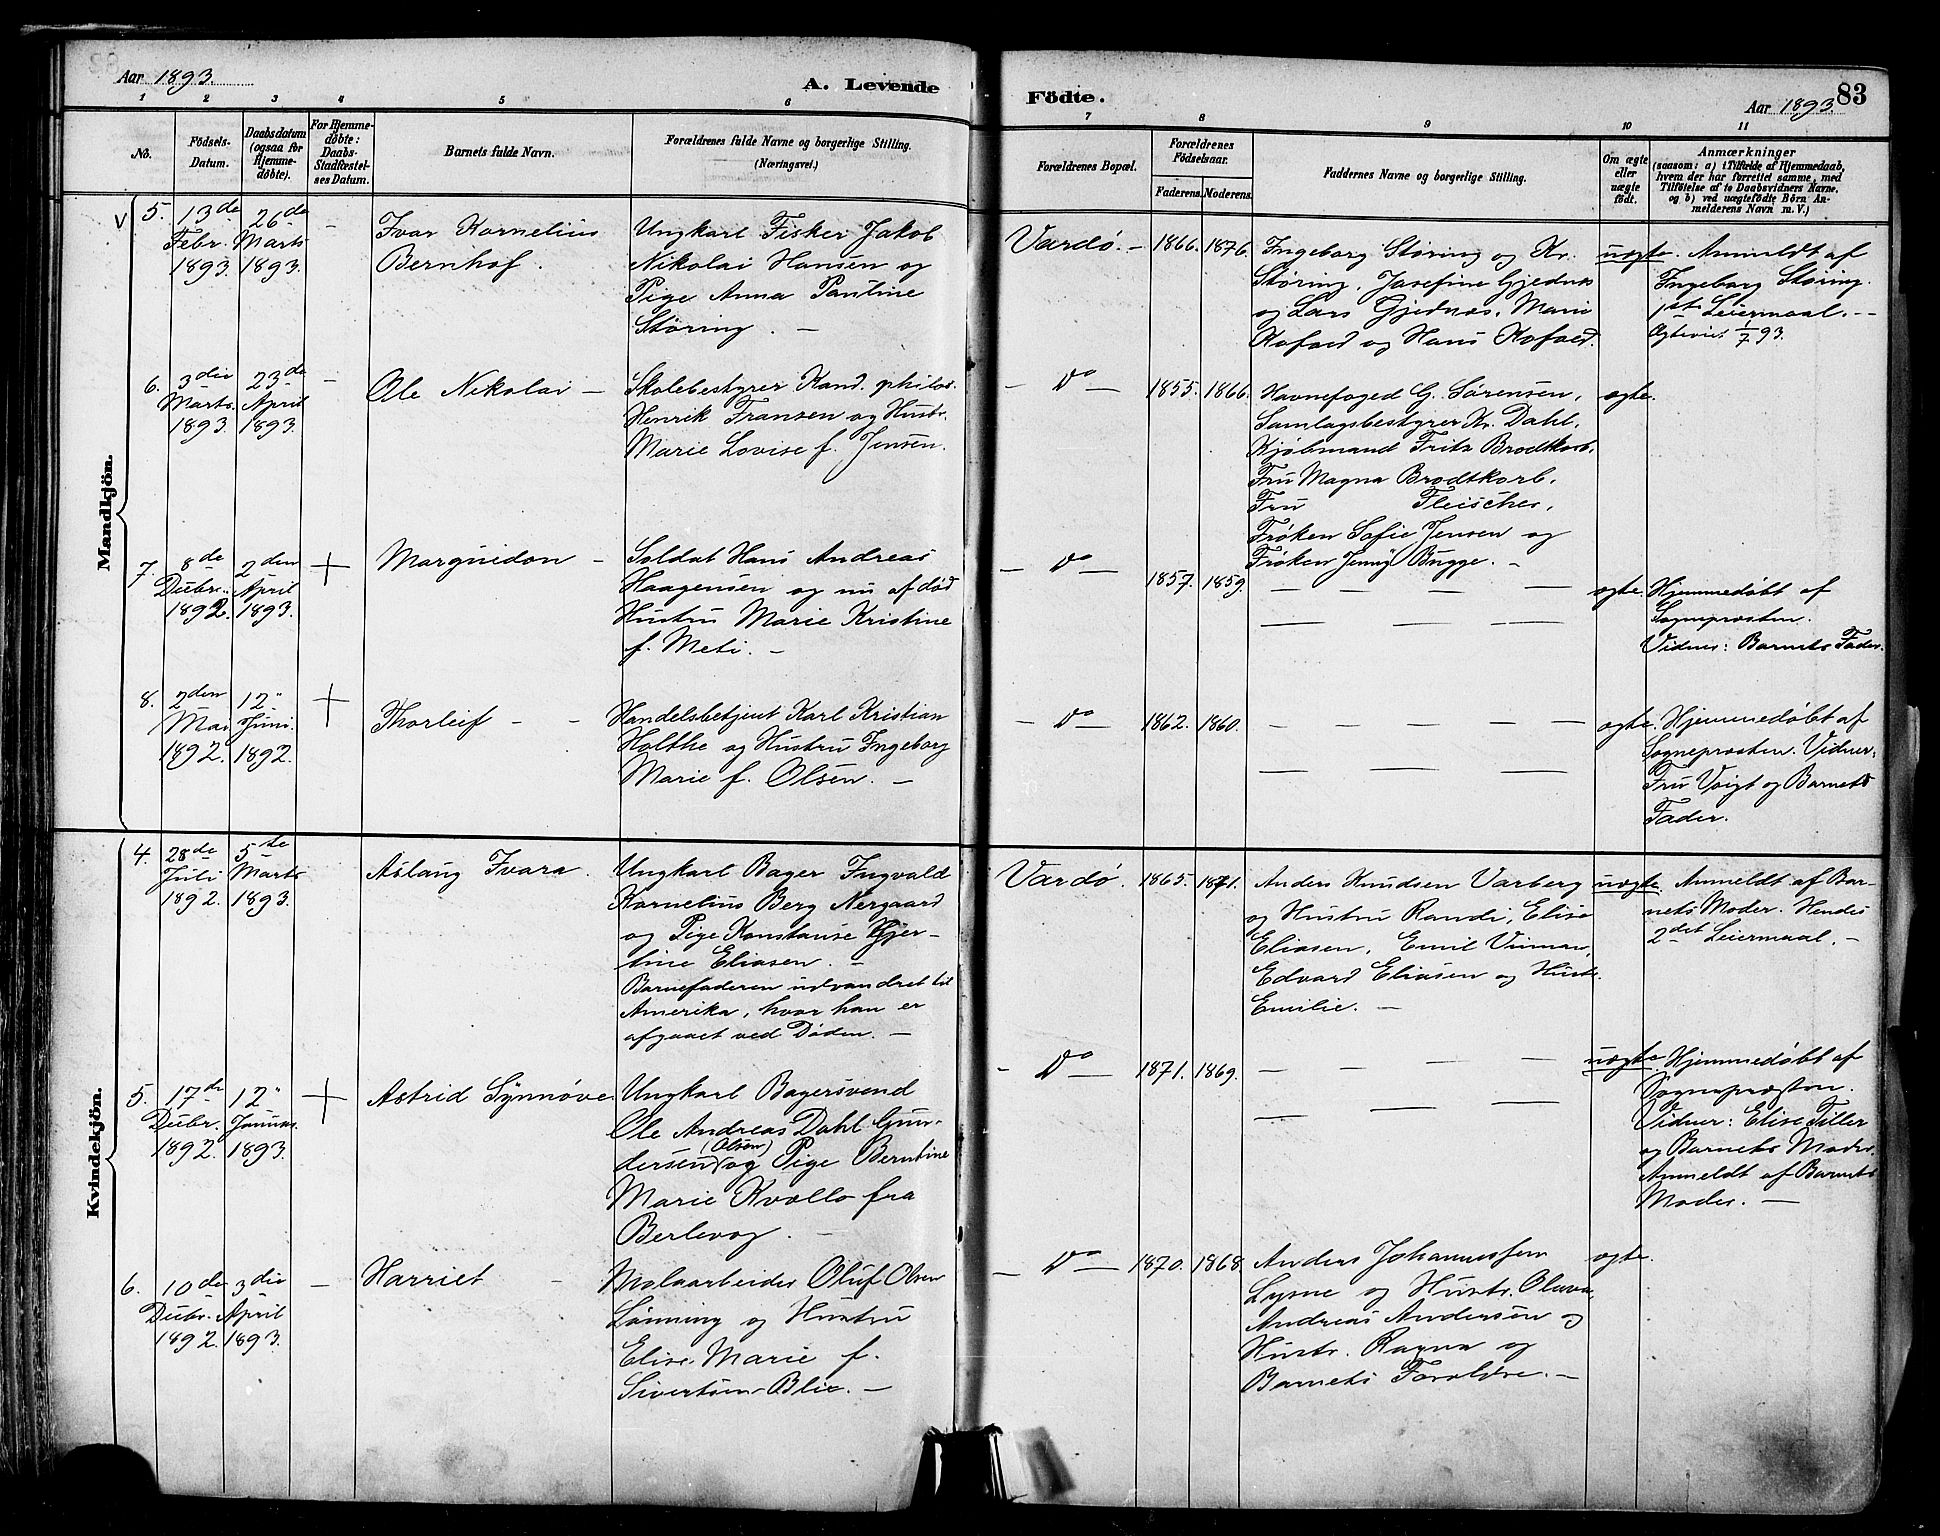 Aar 1893.
A. Levende
Födte.
Aar 1893.
83
1 2 3 4 5 6 7 8 9 10 11
No.
Födsels-Datum.
Daabsdatum (ogsaa for Hjemmedöbte).
For Hjemmedöbte: Daabs-Stadfæstelses Datum.
Barnets fulde Navn.
Forældrenes fulde Navne og borgerlige Stilling.
(Næringsvei.)
Forældrenes Bopæl.
Forældrenes Födselsaar.
Faderens. Moderens.
Faddernes Navne og borgerlige Stilling.
Om ægte eller uægte födt.
Anmærkninger
(saasom: a) i Tilfælde af Hjemmedaab, hvem der har forrettet samme, med Tilföielse af to Daabsvidners Navne, og b) ved uægtefödte Börn Anmelderens Navn m. V.)
Mandkjön.
V 5. 13de Febr. 1893. 26de Marts 1893. –
Ivar Kornelius
Bernhof.
Ungkarl Fisker Jakob
Nikolai Hansen og
Pige Anna Pauline
Støring. –
Vardø. – 1866. 1876.
Ingeborg Støring og Kr.
Støring, Josefine Gjednæs
og Lars Gjednæs, Marie
Kofoed og Hans Kofoed.
uægte.
Anmeldt af
Ingeborg Støring.
1ste Leiermaal. –
Ægteviet 1/7 93.
6. 3die Marts. 1893. 23de April 1893. –
Ole Nikolai –
Skolebestyrer Kand. philos.
Henrik Fransen og Hustr.
Marie Lovise f. Jensen.
– Do – 1855. 1866.
Havnefoged G. Sørensen,
Samlagsbestyrer Kr. Dahl,
Kjøbmand Fritz Brodtkorb,
Fru Magna Brodtkorb,
Fru Fleischer,
Frøken Sofie Jensen og
Frøken Jenny Bugge. –
ægte.
7. 8de Decbr. 1892. 2den April 1893. +
Marguidon –
Soldat Hans Andreas
Haagensen og nu afdød
Hustru Marie Kristine
f. Meti. –
– Do – 1857. 1859.
– – – –
– – – –
ægte.
Hjemmedøbt af
Sognepræsten.
Vidner: Barnets Fader.
8. 2den Mai 1892. 12" Juni 1892. +
Thorleif – –
Handelsbetjent Karl Kristian
Holthe og Hustru Ingeborg
Marie f. Olsen. –
– Do – 1862. 1860.
– – – – –
– – – –
ægte.
Hjemmedøbt af
Sognepræsten. Vidner:
Fru Voigt og Barnets
Fader.
Kvindekjön.
4. 28de Juli 1892. 5te Marts 1893.
Aslaug Ivara.
Ungkarl Bager Ingvald
Kornelius Berg Nergaard
og Pige Konstanse Gjer-
tine Eliasen. –
Barnefaderen udvandret til
Amerika, hvor han er
afgaaet ved Døden. –
Vardø. 1865. 1871.
Anders Knudsen Varberg
og Hustru Randi, Elise
Eliasen, Emil
Edvard Eliasen og Hustr.
Emilie. –
uægte.
Anmeldt af Bar-
nets Moder. Hendes
2det Leiermaal. –
5. 17de Decbr. 1892. 12" Januar 1893. +
Astrid Synnøve
Ungkarl Bagersvend
Ole Andreas Dahl Gun-
(Olsen)
dersen og Pige Berntine
Marie Kvollo fra
Berlevog. –
– Do – 1871. 1869.
– – – –
– – – –
uægte.
Hjemmedøbt af
Sognepræsten.
Vidner: Elise Tiller
og Barnets Moder.
Anmeldt af Barnets
Moder. –
6. 10de Decbr. 1892. 3die April 1893. –
Harriet –
Moloarbeider Oluf Olsen
Lønning og Hustru
Elise Marie f.
Sivertsen-Blie. –
– Do – 1870. 1868.
Anders Johannessen
Lysne og Hustr. Oluva,
Andreas Andersen og
Hustr. Ragna og
Barnets Forældre. –
ægte.